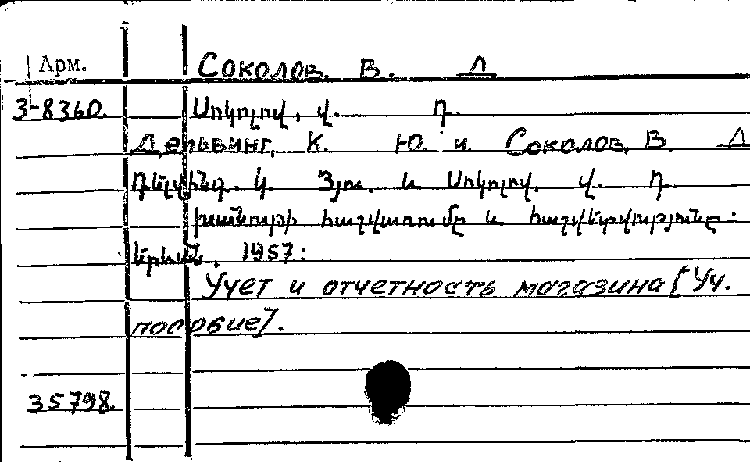 Арм. Соколов, В. Д
3-8360. Սոկոլով, վ. դ.
Дельвинг, К. Ю. и Соколов, В. Д
Դելվինգ. կ. Յու. և Սոկոլով. վ. դ.
խանութի հաշվառումը և հաշվետվությունը:
Երևան, 1957:
Учет и отчетность магазина [Уч.
пособие].
35798.